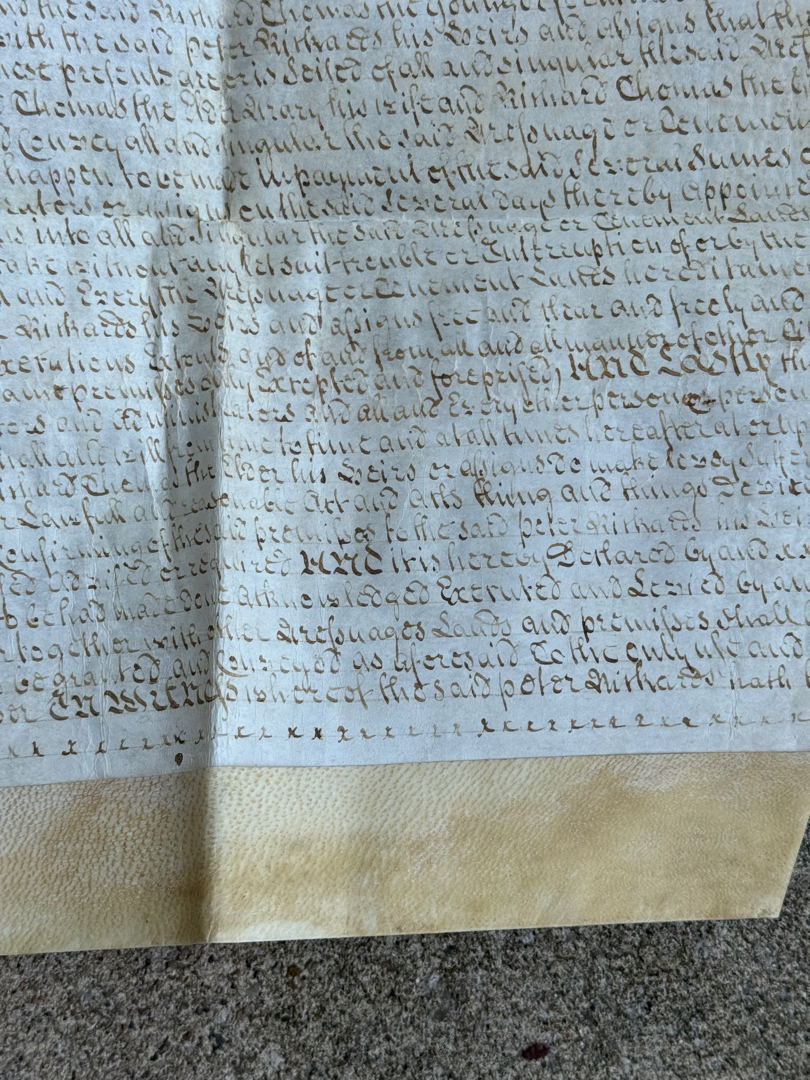 the said Richard Thomas the younger
with the said Peter Richards his Heirs and assigns that the
these presents are seised of all and singular the said Mess
Thomas the Elder Mary his wife and Richard Thomas the
Convey all and singular the said Messuage or Tenement
happen to be made in payment of the said Several Sumes
or assigns on the said Several days thereby appointed
into all and Singular the said Messuage or Tenement Lands
take without any let suit trouble or Interruption of or by the
and Every the Messuage or Tenement Lands hereditame
Richards his Heirs and assigns free and clear and freely and
Executions Extents and of and from all and all manner of other
same premisses only Excepted and foreprised) AND LASTLY th
and Administrators and all and Every other person or person
shall and will from time to time and at all times hereafter at or up
Richard Thomas the Elder his Heirs or assigns Do make Levy Suffer
Lawfull and reasonable Act and acts thing and things Devic
Confirming of the said premisses to the said Peter Richards his Hei
devised or required AND it is hereby Declared by and
to be had made Done acknowledged Executed and Levied by an
together with other Messuages Lands and premisses shall
be granted and Conveyed as aforesaid To the only use and
IN WITNESS whereof the said Peter Richards hath
x x x x x x x x x x x x x x x x x x x x x x x x